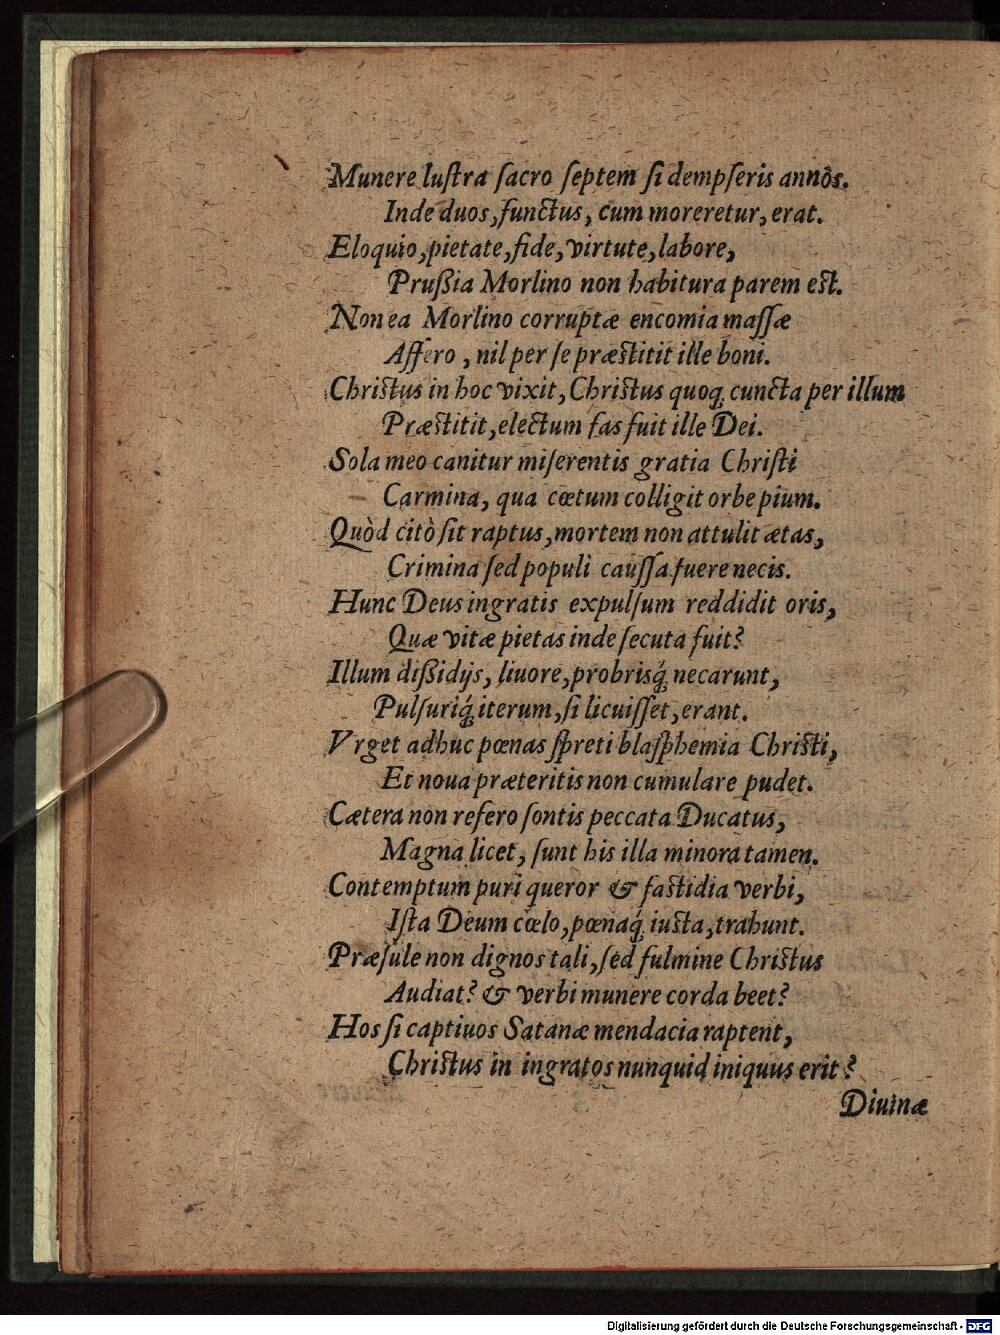 Munere luſtra ſacro ſeptem ſi dempſeris annôs.
Inde duos, functus, cum moreretur, erat.
Eloquio, pietate, fide, virtute, labore,
Prußia Morlino non habitura parem eſt.
Non ea Morlino corruptæ encomia maſſæ
Affero, nil per ſe præſtitit ille boni.
Chriſtus in hoc vixit, Chriſtus quoq́ cuncta per illum
Præſtitit, electum fas fuit ille Dei.
Sola meo canitur miſerentis gratia Chriſti
Carmina, qua cœtum colligit orbe pium.
Quòd citò ſit raptus, mortem non attulit ætas,
Crimina ſed populi cauſſa fuere necis.
Hunc Deus ingratis expulſum reddidit oris,
Quæ vitæ pietas inde ſecuta fuit?
Illum dißidijs, liuore, probrisq́ necarunt,
Pulſuriq́ iterum, ſi licuiſſet, erant.
Vrget adhuc pœnas ſpreti blaſphemia Chriſti,
Et noua præteritis non cumulare pudet.
Cætera non refero ſontis peccata Ducatus,
Magna licet, ſunt his illa minora tamen.
Contemptum puri queror & faſtidia verbi,
Iſta Deum cœlo, pœnaq́ iuſta, trahunt.
Præſule non dignos tali, ſed fulmine Chriſtus
Audiat? & verbi munere corda beet?
Hos ſi captiuos Satanæ mendacia raptent,
Chriſtus in ingratos nunquid iniquus erit?
Diuinæ
Digitalisierung gefördert durch die Deutsche Forschungsgemeinschaft - DFG